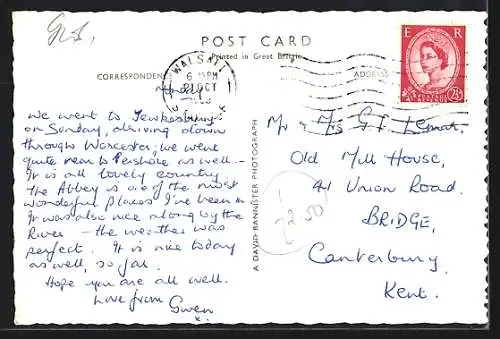 POST CARD
Printed in Great Britain
CORRESPONDENCE
ADDRESS
WALSALL
6 PM
21 OCT
E R
POSTAGE
2½
Monday
We went to Tewkesbury
on Sunday, driving down
through Worcester, we went
quite near to Pershore as well —
It is all lovely country.
The Abbey is one of the most
wonderful places I've been in
It was also nice along by the
River — the weather was
perfect. It is nice today
as well, so far.
Hope you are all well.
Love from
Gwen
x
A DAVID BANNISTER PHOTOGRAPH
£2.50
Mr & Mrs G F
Old Mill House,
41 Union Road.
BRIDGE,
Canterbury
Kent.